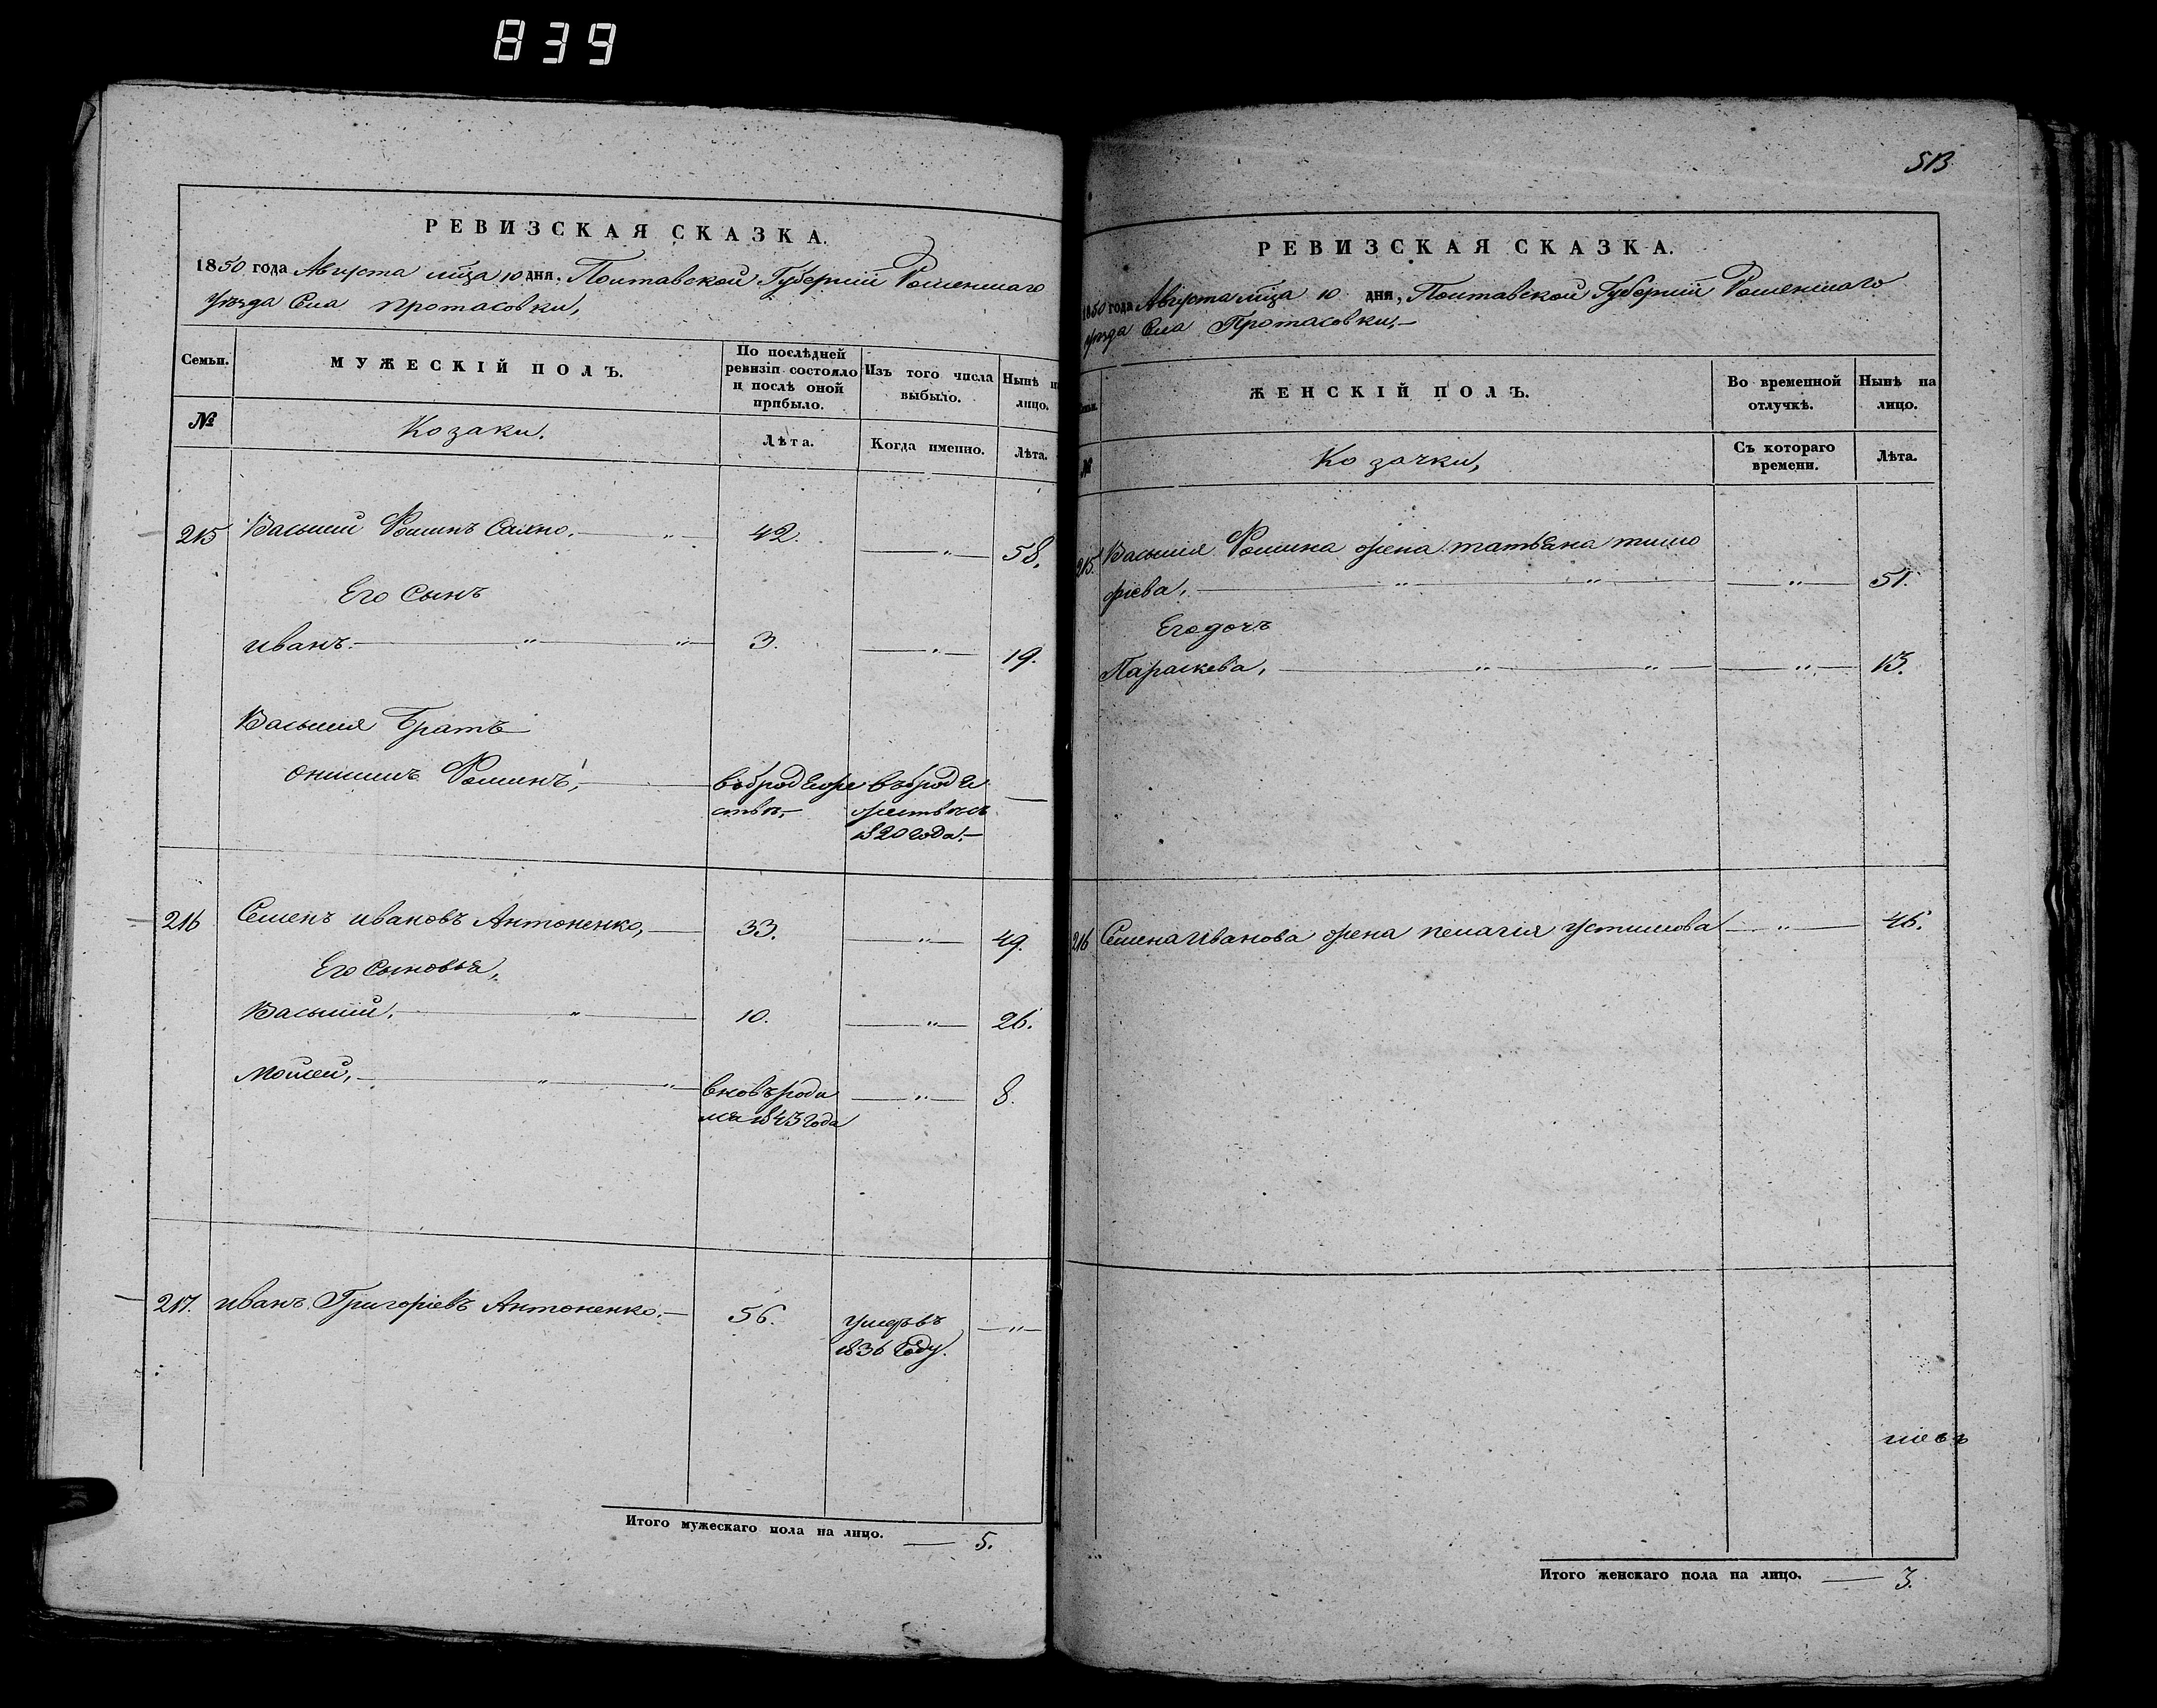 839
РЕВИЗСКАЯ СКАЗКА.
1850 года Августа мѣца 10 дня, Полтавской Губерніи Роменскаго
уѣзда Села Протасовки,
Семьи.
МУЖЕСКІЙ ПОЛЪ.
По послѣдней ревизіи состояло и послѣ оной прибыло.
Изъ того числа выбыло.
Нынѣ на лицо.
№
Козаки.
Лѣта.
Когда именно.
Лѣта.
215 Василій Фоминъ 42. 58.
Его Сынъ
Иванъ. 3. 19.
Василия Братъ
Онисимъ Фоминъ, въ бродяжествѣ въ бродяжествѣ съ 1820 года.
216 Семенъ Ивановъ Антоненко, 33. 49.
Его Сыновья,
Василий, 10. 26.
Моисей, вновь роди лся 1843 года 8.
217. Иванъ Григоріевъ Антоненко. 56. умеръ въ 1836 Году.
Итого мужескаго пола на лицо. 5.
513
РЕВИЗСКАЯ СКАЗКА.
1850 года Августа мѣца 10 дня, Полтавской Губерніи Роменскаго
уѣзда Села Протасовки,
Семьи.
ЖЕНСКІЙ ПОЛЪ.
Во временной отлучкѣ.
Нынѣ на лицо.
№
Козачки,
Съ котораго времени.
Лѣта.
215. Василия Фомина жена татьяна тимо
фіева, 51.
Его дочь
Параскева, 13.
216 Семена Иванова жена пелагія Устимова 46.
Итого женскаго пола на лицо. 3.